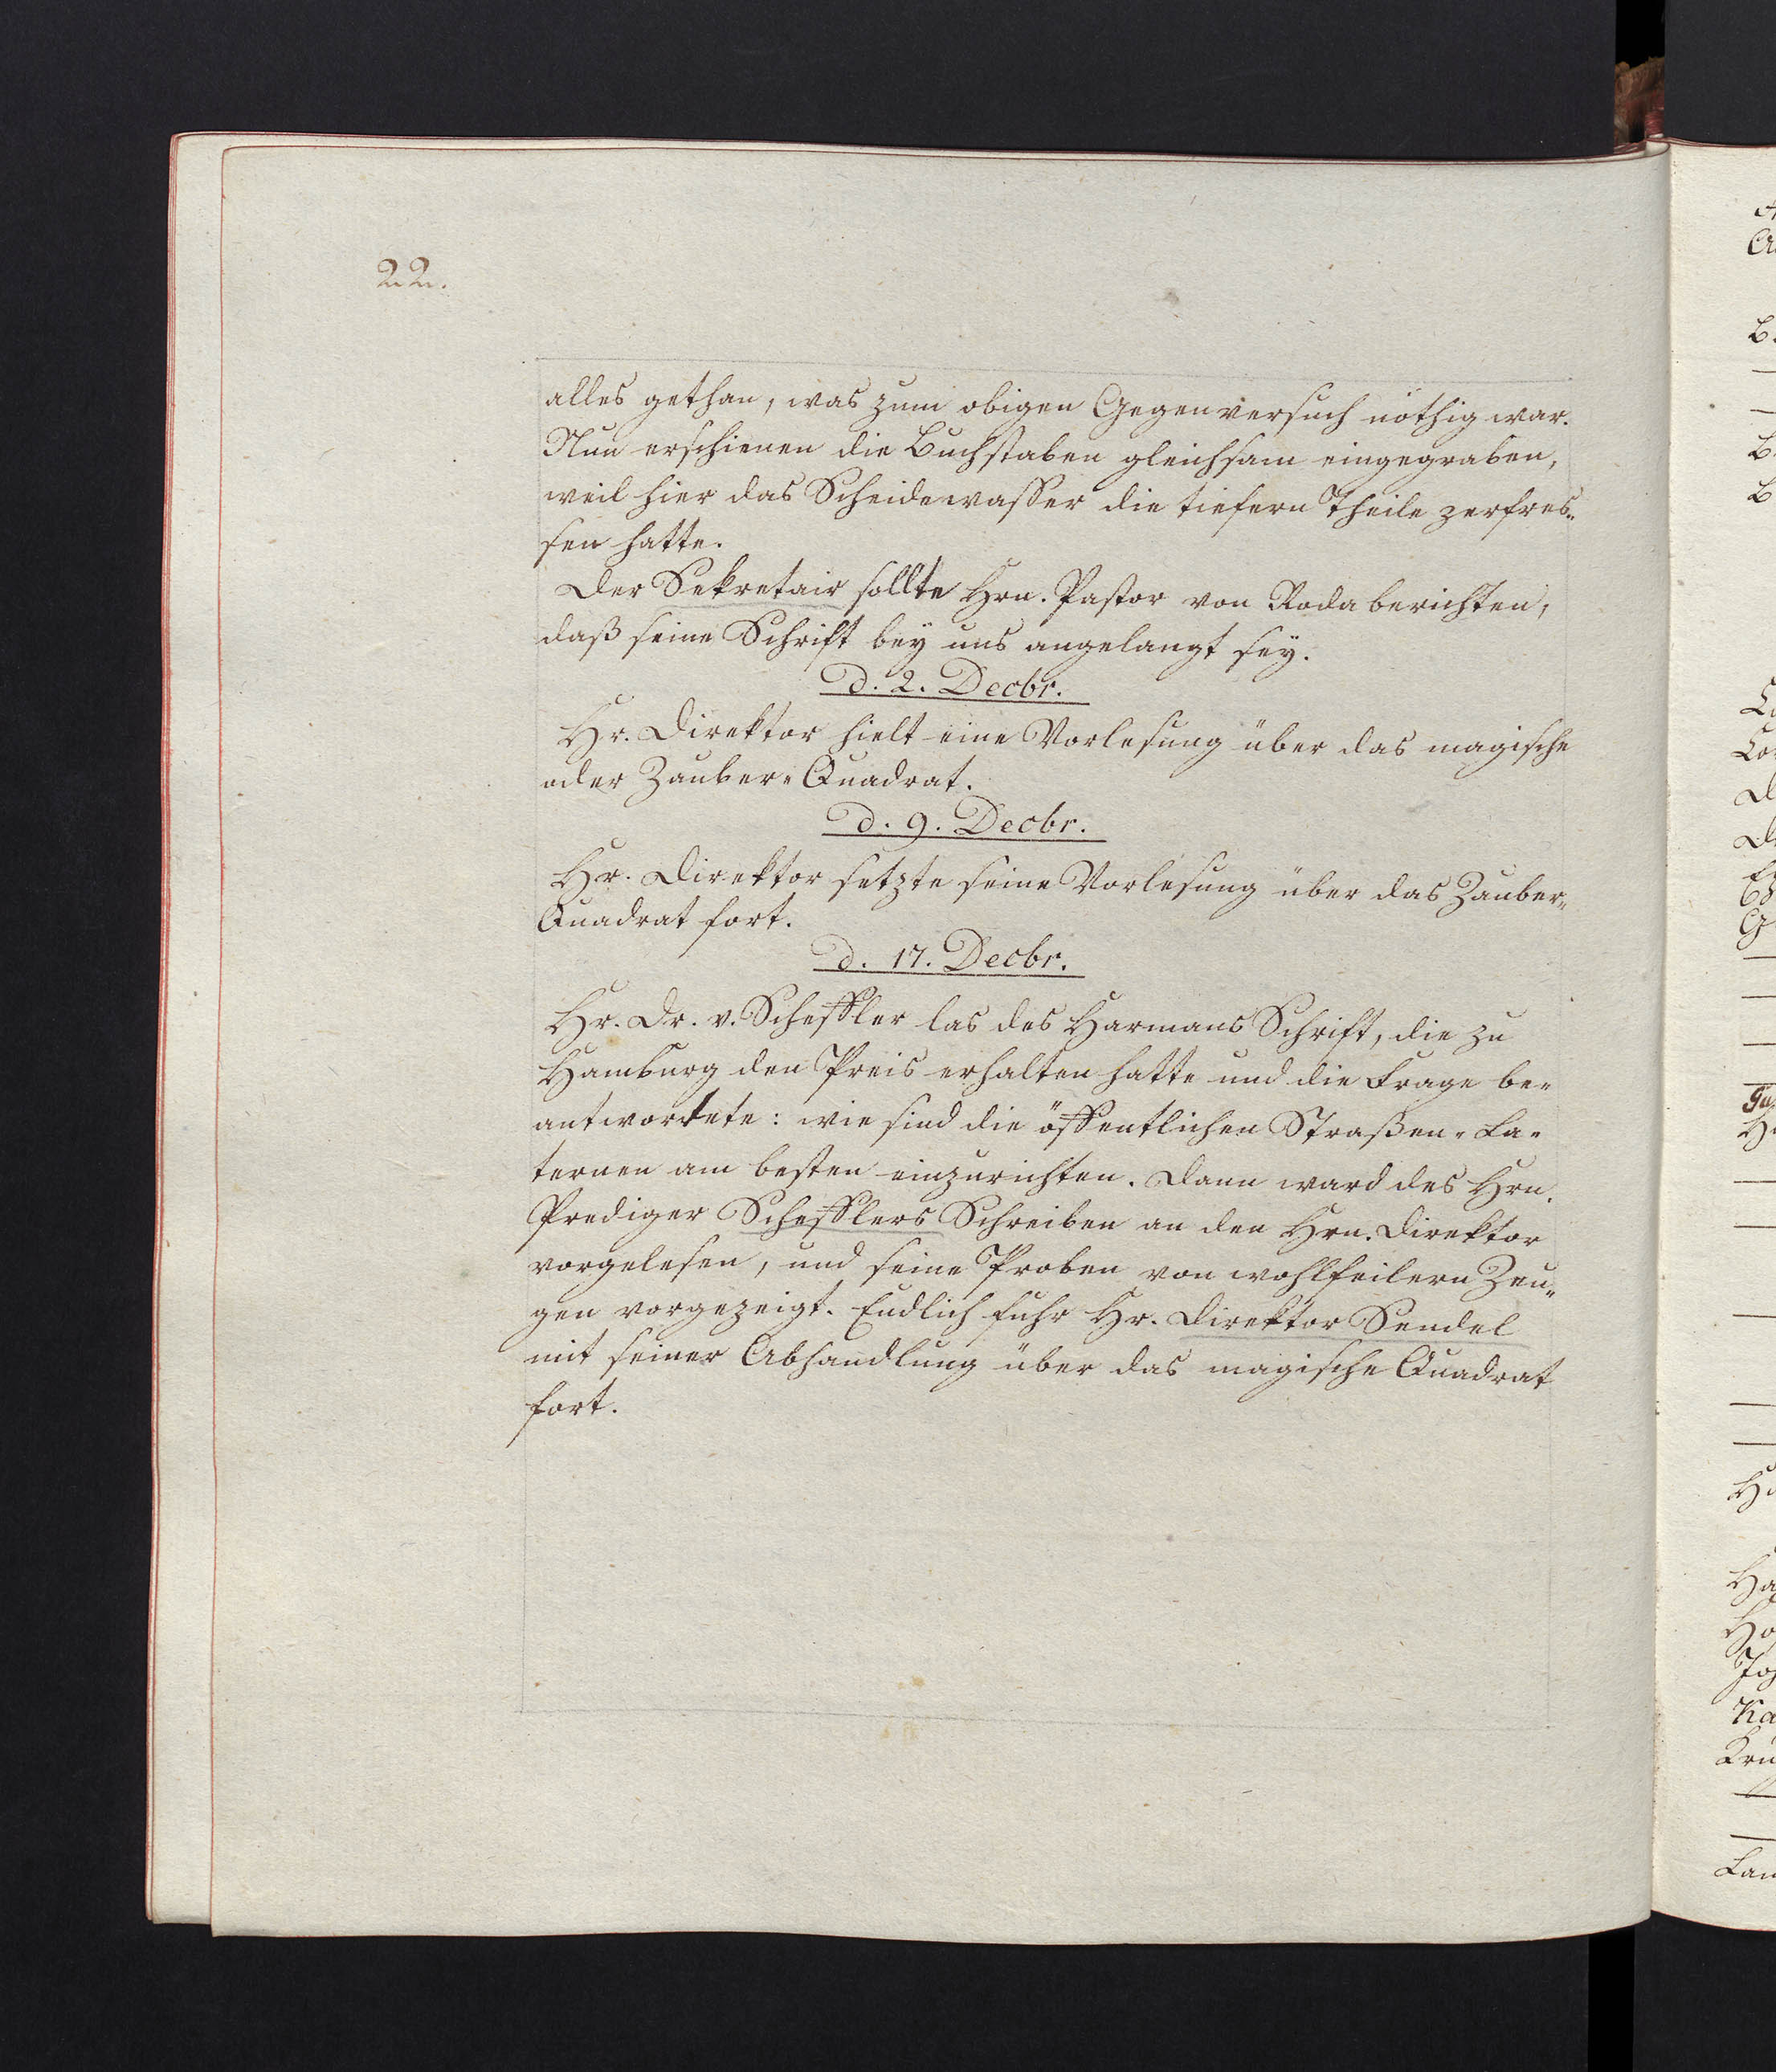 22.
alles gethan, was zum obigen Gegenversuch nöthig war.
Nun erschienen die Buchstaben gleichsam eingegraben,
weil hier das Scheidewasser die tiefern Theile zerfres-
sen hatte.
Der Sekretair sollte Hrn. Pastor von Roda berichten,
daß seine Schrift bey uns angelangt sey.
d. 2. Decbr.
Hr. Direktor hielt eine Vorlesung über das magische
oder Zauber-Quadrat.
d. 9. Decbr.
Hr. Direktor setzte seine Vorlesung über das Zauber-
Quadrat fort.
d. 17. Decbr.
Hr. Dr. v. Scheffler las des Harmans Schrift, die zu
Hamburg den Preis erhalten hatte und die Frage be-
antwortete: wie sind die öffentlichen Straßen-La-
ternen am besten einzurichten. Dann ward des Hrn.
Prediger Schefflers Schreiben an den Hrn. Direktor
vorgelesen, und seine Proben von wohlfeilern Zeu-
gen vorgezeigt. Endlich fuhr Hr. Direktor Sendel
mit seiner Abhandlung über das magische Quadrat
fort.